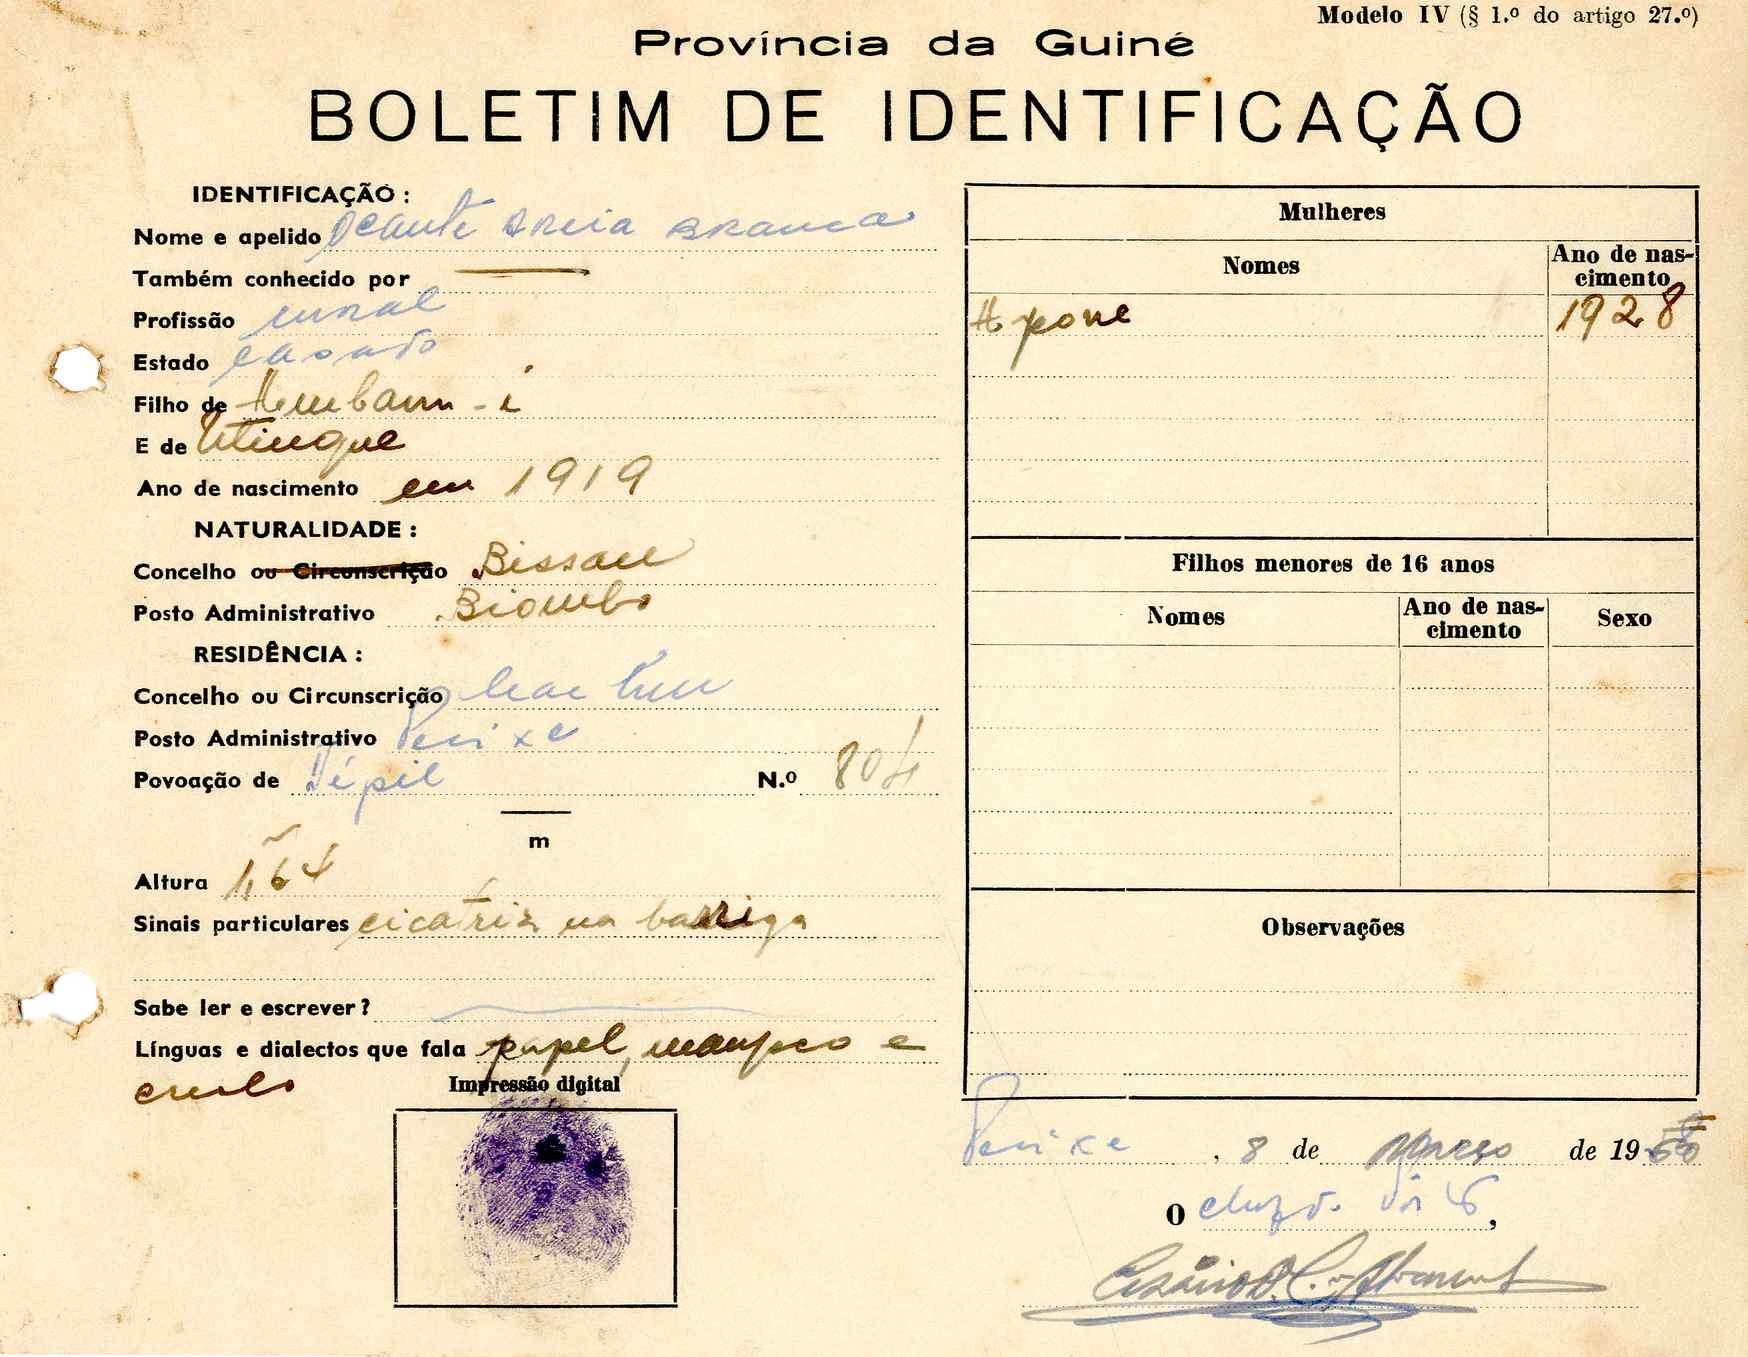 Modelo IV (§ 1.º do artigo 27.º)
Província da Guiné
BOLETIM DE IDENTIFICAÇÃO
IDENTIFICAÇÃO :
Nome e apelido Ocante Areia Branca
Também conhecido por
Profissão rural
Estado casado
Filho de
E de
Ano de nascimento em 1919
NATURALIDADE :
Concelho ou Circunscrição Bissau
Posto Administrativo Biombo
RESIDÊNCIA :
Concelho ou Circunscrição
Posto Administrativo Pexixe
Povoação de N.º 804
m
Altura 1,64
Sinais particulares cicatriz na barriga
Sabe ler e escrever ?
Línguas e dialectos que fala papel, manjaco e
crioulo
Impressão digital
Mulheres
Nomes Ano de nas-
cimento
Apone 1928
Filhos menores de 16 anos
Nomes Ano de nas-
cimento Sexo
Observações
Pexixe, 8 de Março de 19
O